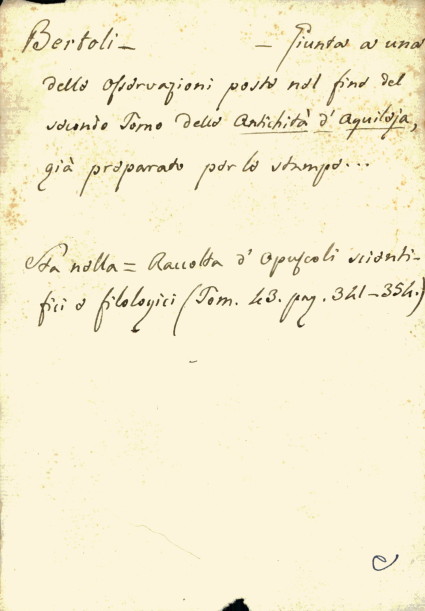 Bertoli — — Giunta a una
delle osservazioni poste nel fine del
secondo Tomo delle Antichità d' Aquileja,
già preparato per le stampe...
Sta nella = Raccolta d' Opuscoli scienti-
fici e filologici (Tom. 43. pag. 341–354.)